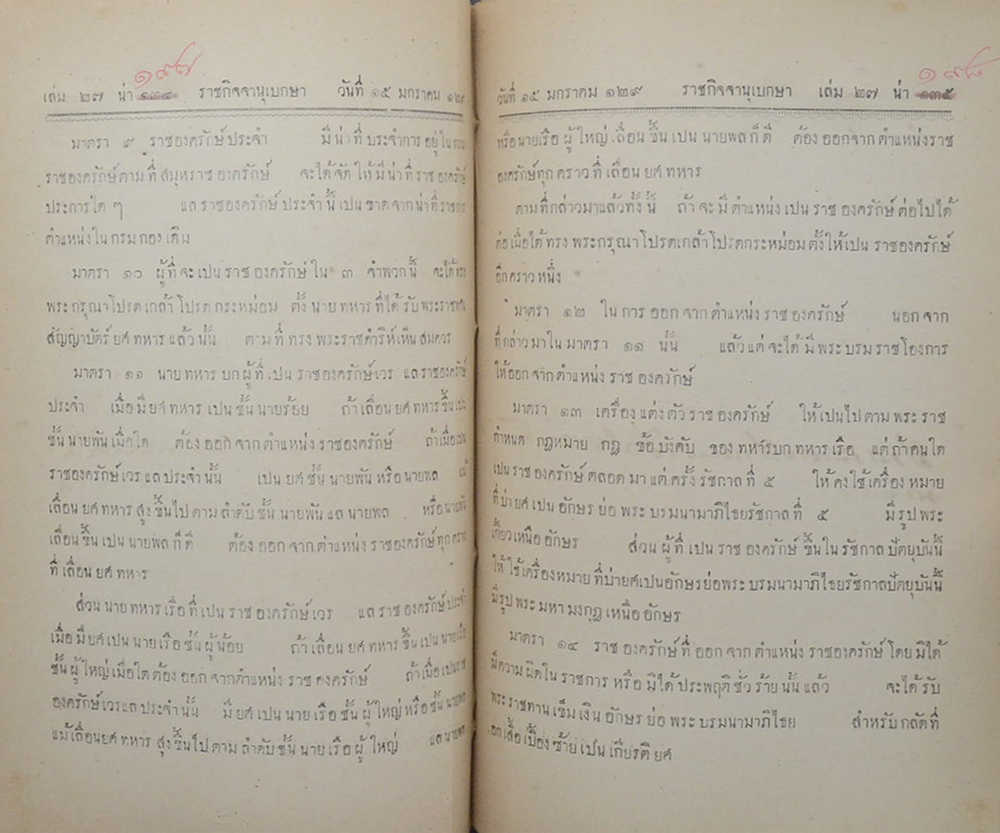 ๑๙๗
เล่ม ๒๗ น่า ๑๓๔ ราชกิจจานุเบกษา วันที่ ๑๕ มกราคม ๑๒๙
มาตรา ๙ ราชองครักษ์ประจำ มีน่าที่ประจำการอยู่ใน
ราชองครักษ์ตามที่สมุหราชองครักษ์ จะได้จัดให้มีน่าที่ราชองครักษ์
ประการใด ๆ แลราชองครักษ์ประจำนี้เปนขาดจากน่าที่
ตำแหน่งในกรมกองเดิม
มาตรา ๑๐ ผู้ที่จะเปนราชองครักษ์ใน ๓ จำพวกนี้ จะได้ทรง
พระกรุณาโปรดเกล้าโปรดกระหม่อม ตั้งนายทหารที่ได้รับพระราชทาน
สัญญาบัตร์ยศทหารแล้วนั้น ตามที่ทรงพระราชดำริห์เห็นสมควร
มาตรา ๑๑ นายทหารบกผู้ที่เปนราชองครักษ์เวร แลราชองครักษ์
ประจำ เมื่อมียศทหารเปนชั้นนายร้อย ถ้าเลื่อนยศทหารขึ้นเปน
ชั้นนายพันเมื่อใด ต้องออกจากตำแหน่งราชองครักษ์ ถ้าเมื่อเปน
ราชองครักษ์เวรแลประจำนั้น เปนยศชั้นนายพันหรือนายพล แม้
เลื่อนยศทหารสูงขึ้นไปตามลำดับชั้นนายพันแลนายพล หรือนายพัน
เลื่อนขึ้นเปนนายพลก็ดี ต้องออกจากตำแหน่งราชองครักษ์ทุกคราว
ที่เลื่อนยศทหาร
ส่วนนายทหารเรือที่เปนราชองครักษ์เวร แลราชองครักษ์ประจำ
เมื่อมียศเปนนายเรือชั้นผู้น้อย ถ้าเลื่อนยศทหารขึ้นเปนนายเรือ
ชั้นผู้ใหญ่เมื่อใดต้องออกจากตำแหน่งราชองครักษ์ ถ้าเมื่อเปนราช
องครักษ์เวรแลประจำนั้น มียศเปนนายเรือชั้นผู้ใหญ่หรือชั้นนายพล
แม้เลื่อนยศทหารสูงขึ้นไปตามลำดับชั้นนายเรือผู้ใหญ่ แลนายพล
๑๙๘
วันที่ ๑๕ มกราคม ๑๒๙ ราชกิจจานุเบกษา เล่ม ๒๗ น่า ๑๓๕
หรือนายเรือผู้ใหญ่เลื่อนขึ้นเปนนายพลก็ดี ต้องออกจากตำแหน่งราช
องครักษ์ทุกคราวที่เลื่อนยศทหาร
ตามที่กล่าวมาแล้วทั้งนี้ ถ้าจะมีตำแหน่งเปนราชองครักษ์ต่อไปได้
ต่อเมื่อได้ทรงพระกรุณาโปรดเกล้าโปรดกระหม่อมตั้งให้เปนราชองครักษ์
อีกคราวหนึ่ง
มาตรา ๑๒ ในการออกจากตำแหน่งราชองครักษ์ นอกจาก
ที่กล่าวมาในมาตรา ๑๑ นั้น แล้วแต่จะได้มีพระบรมราชโองการ
ให้ออกจากตำแหน่งราชองครักษ์
มาตรา ๑๓ เครื่องแต่งตัวราชองครักษ์ ให้เปนไปตามพระราช
กำหนด กฎหมาย กฎ ข้อบังคับ ของทหารบกทหารเรือ แต่ถ้าคนใด
เปนราชองครักษ์ตลอดมาแต่ครั้งรัชกาลที่ ๕ ให้คงใช้เครื่องหมาย
ที่บ่ายศเปนอักษรย่อพระบรมนามาภิไธยรัชกาลที่ ๕ มีรูปพระ
เกี้ยวเหนืออักษร ส่วนผู้ที่เปนราชองครักษ์ขึ้นในรัชกาลปัตยุบันนี้
ให้ใช้เครื่องหมายที่บ่ายศเปนอักษรย่อพระบรมนามาภิไธยรัชกาลปัตยุบันนี้
มีรูปพระมหามงกุฎเหนืออักษร
มาตรา ๑๔ ราชองครักษ์ที่ออกจากตำแหน่งราชองครักษ์โดยมิได้
มีความผิดในราชการหรือมิได้ประพฤติชั่วร้ายนั้นแล้ว จะได้รับ
พระราชทานเข็มเงินอักษรย่อพระบรมนามาภิไธย สำหรับกลัดที่
อกเสื้อเบื้องซ้ายเปนเกียรติยศ